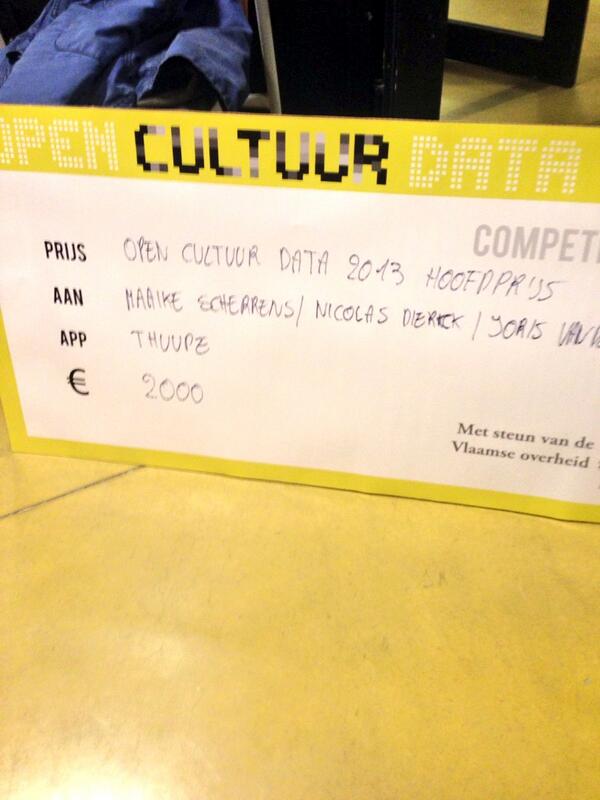 OPEN CULTUUR DATA
COMPETI
PRIJS OPEN CULTUUR DATA 2013 HOOFDPRIJS
AAN MAAIKE SCHERRENS / NICOLAS DIERICK / JORIS
APP THUUPZ
€ 2000
Met steun van de
Vlaamse overheid